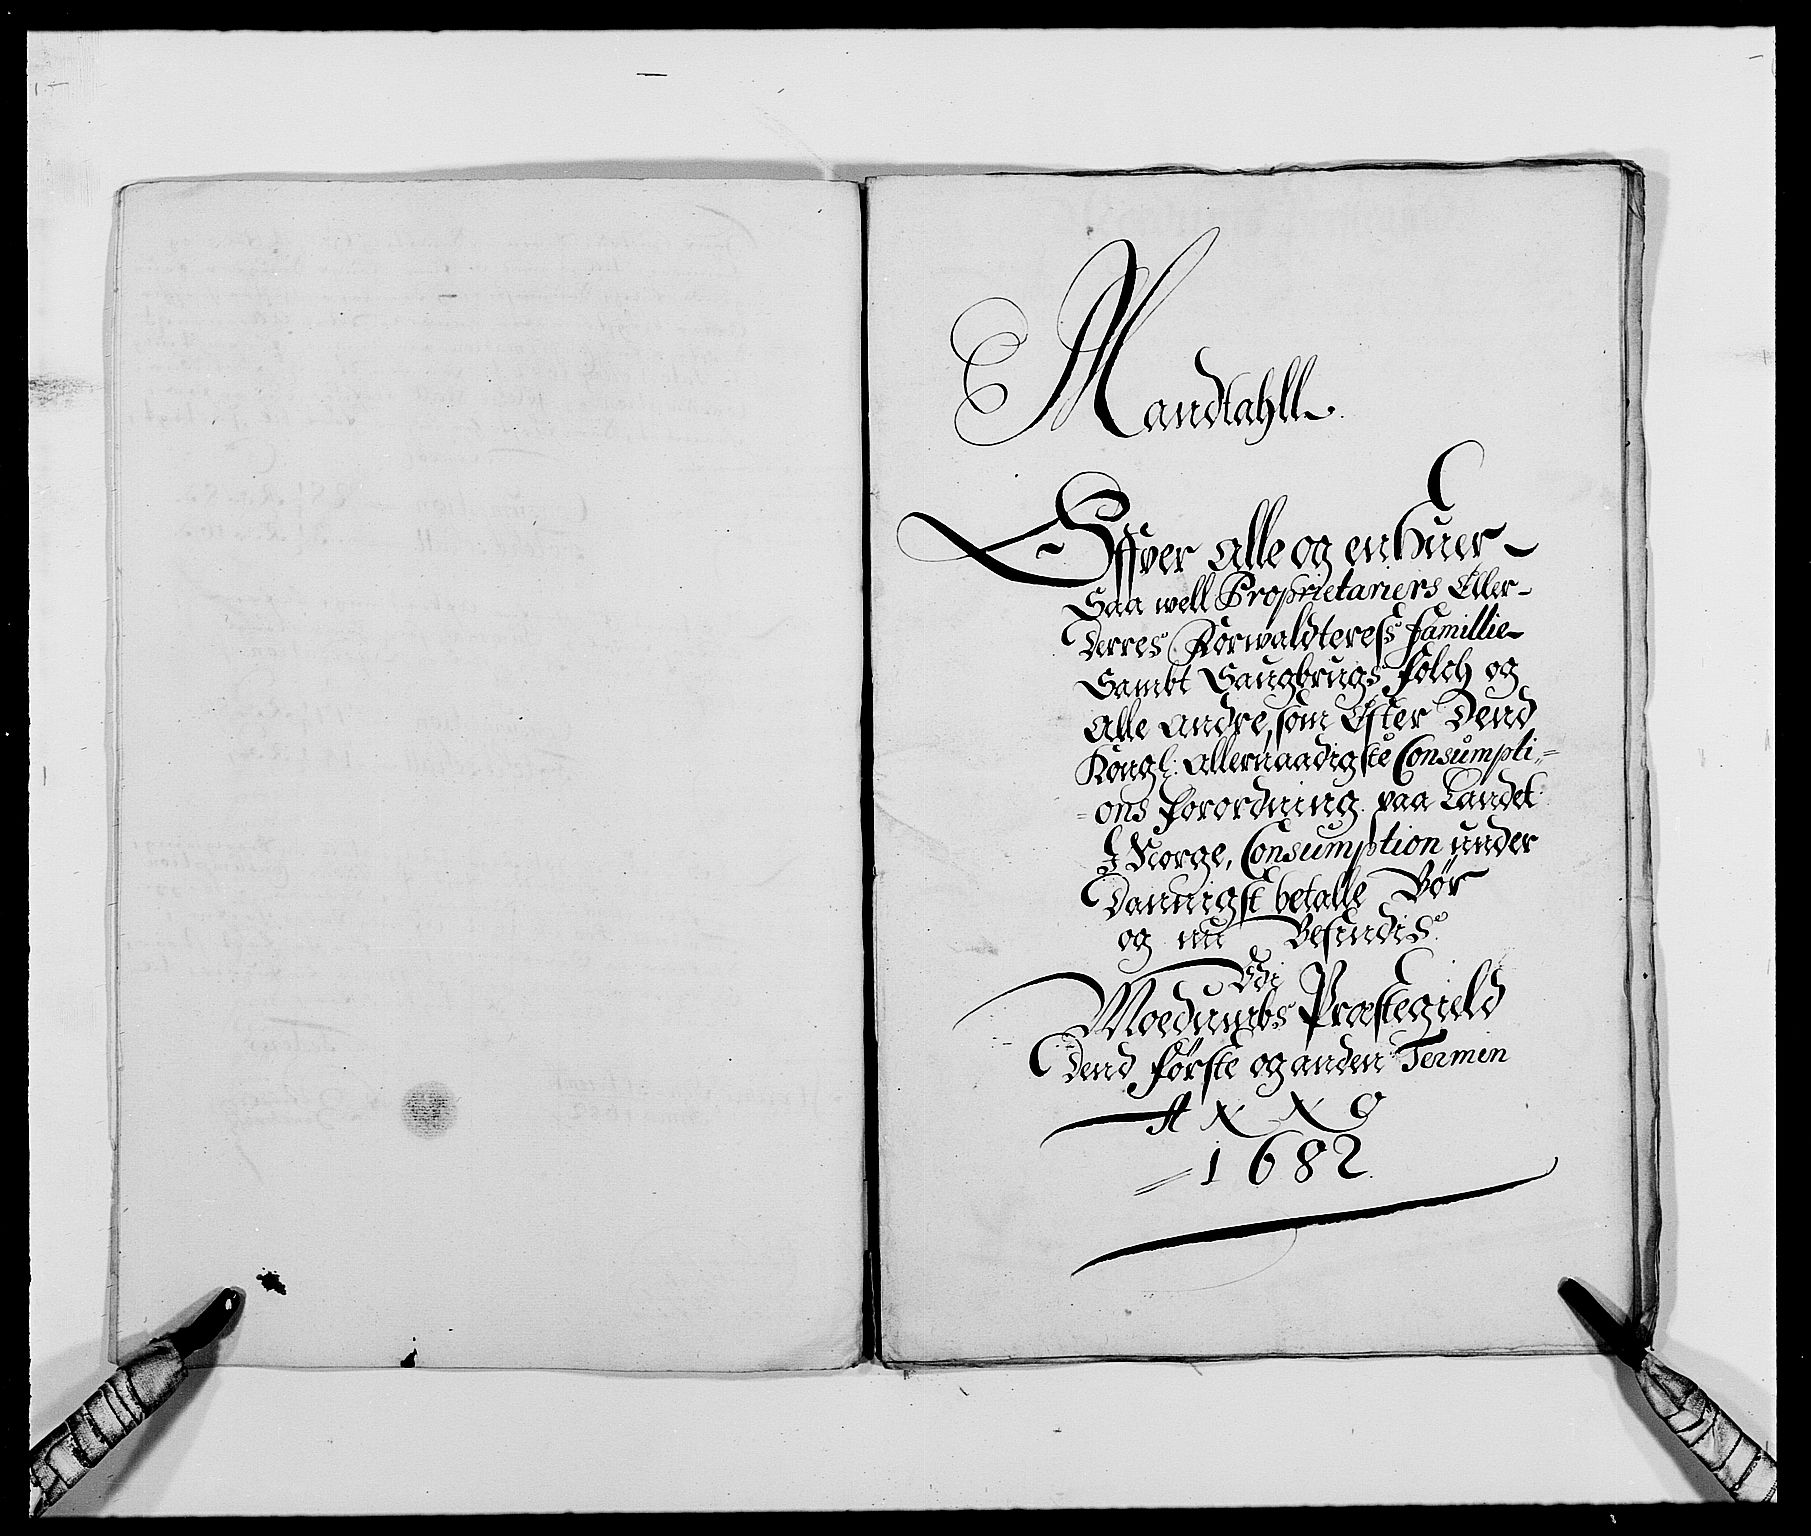 Mandtahll
Offver alle og enhuer
Saa well Proprietariers Eller
Derres Forwaldteres Famillie
Sambt Saugbrugs Folch og
Alle andre, som Efter Dend
Kongl: Allernaadigste Consumpti-
-ons Forordning paa Landet
I Norge, Consumption under
Dannigst betalle Bør
og nu Befindis
Udi
Moedumbs Præstegield
Dend Første og anden Termin
ANNO
1682